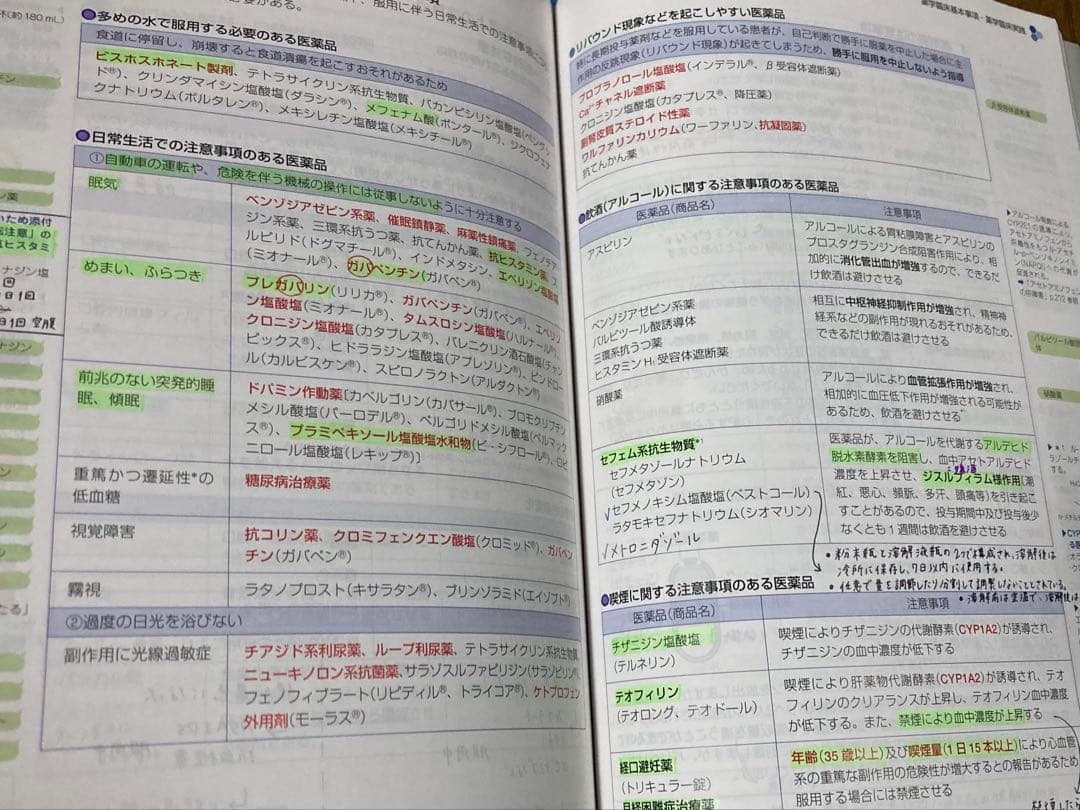 水(約180 mL)
服用に伴う日常生活での注意事項
●多めの水で服用する必要のある医薬品
食道に停留し、崩壊すると食道潰瘍を起こすおそれがあるため
ビスホスホネート製剤、テトラサイクリン系抗生物質、バカンピシリン塩酸塩(ペングッ
ド®)、クリンダマイシン塩酸塩(ダラシン®)、メフェナム酸(ポンタール®)、ジクロフェナ
クナトリウム(ボルタレン®)、メキシレチン塩酸塩(メキシチール®)
●日常生活での注意事項のある医薬品
①自動車の運転や、危険を伴う機械の操作には従事しないように十分注意する
眠気
ベンゾジアゼピン系薬、催眠鎮静薬、麻薬性鎮痛薬、フェノチア
ジン系薬、三環系抗うつ薬、抗てんかん薬、抗ヒスタミン薬、ス
ルピリド(ドグマチール®)、インドメタシン、エペリゾン塩酸塩
(ミオナール®)、ガバペンチン(ガバペン®)
めまい、ふらつき
プレガバリン(リリカ®)、ガバペンチン(ガバペン®)、エペリゾ
ン塩酸塩(ミオナール®)、タムスロシン塩酸塩(ハルナール®)、
クロニジン塩酸塩(カタプレス®)、バレニクリン酒石酸塩(チャン
ピックス®)、ヒドララジン塩酸塩(アプレゾリン®)、ピンドロー
ル(カルビスケン®)、スピロノラクトン(アルダクトン®)
前兆のない突発的睡
眠、傾眠
ドパミン作動薬〔カベルゴリン(カバサール®)、ブロモクリプチン
メシル酸塩(パーロデル®)、ペルゴリドメシル酸塩(ペルマック
ス®)、プラミペキソール塩酸塩水和物(ビ・シフロール®)、ロピ
ニロール塩酸塩(レキップ®)〕
重篤かつ遷延性*の
低血糖
糖尿病治療薬
視覚障害
抗コリン薬、クロミフェンクエン酸塩(クロミッド®)、ガバペン
チン(ガバペン®)
霧視
ラタノプロスト(キサラタン®)、ブリンゾラミド(エイゾプト®)
②過度の日光を浴びない
副作用に光線過敏症
チアジド系利尿薬、ループ利尿薬、テトラサイクリン系抗生物質、
ニューキノロン系抗菌薬、サラゾスルファピリジン(サラゾピリン®)、
フェノフィブラート(リピディル®、トライコア®)、ケトプロフェン
外用剤(モーラス®)
薬学臨床基本事項・薬学臨床実践
●リバウンド現象などを起こしやすい医薬品
特に長期投与薬剤などを服用している患者が、自己判断で勝手に服薬を中止した場合に主
作用の反跳現象(リバウンド現象)が起きてしまうため、勝手に服用を中止しないよう指導
プロプラノロール塩酸塩(インデラル®、β受容体遮断薬)
Ca²⁺チャネル遮断薬
クロニジン塩酸塩(カタプレス®、降圧薬)
副腎皮質ステロイド性薬
ワルファリンカリウム(ワーファリン、抗凝固薬)
抗てんかん薬
●飲酒(アルコール)に関する注意事項のある医薬品
医薬品(商品名)
注意事項
アスピリン
アルコールによる胃粘膜障害とアスピリンの
プロスタグランジン合成阻害作用により、相
加的に消化管出血が増強するので、できるだ
け飲酒は避けさせる
ベンゾジアゼピン系薬
バルビツール酸誘導体
三環系抗うつ薬
ヒスタミンH₁受容体遮断薬
相互に中枢神経抑制作用が増強され、精神神
経系などの副作用が現れるおそれがあるため、
できるだけ飲酒は避けさせる
硝酸薬
アルコールにより血管拡張作用が増強され、
相加的に血圧低下作用が増強される可能性が
あるため、飲酒を避けさせる
セフェム系抗生物質*¹
セフメタゾールナトリウム
(セフメタゾン)
√セフメノキシム塩酸塩(ベストコール)
ラタモキセフナトリウム(シオマリン)
√メトロニダゾール
医薬品が、アルコールを代謝するアルデヒド
脱水素酵素を阻害し、血中アセトアルデヒド
濃度を上昇させ、ジスルフィラム様作用(潮
紅、悪心、頻脈、多汗、頭痛等)を引き起こ
すことがあるので、投与期間中及び投与後少
なくとも1週間は飲酒を避けさせる
・粉末瓶と溶解液瓶の2つで構成され、溶解後は
冷所に保存し、7日以内に使用する。
・任意で量を調節したり分割して調製しないこととされている。
・溶解前は室温で、溶解後は
●喫煙に関する注意事項のある医薬品
医薬品(商品名)
注意事項
チザニジン塩酸塩
(テルネリン)
喫煙によりチザニジンの代謝酵素(CYP1A2)が誘導され、
チザニジンの血中濃度が低下する
テオフィリン
(テオロング、テオドール)
喫煙により肝薬物代謝酵素(CYP1A2)が誘導され、テオ
フィリンのクリアランスが上昇し、テオフィリン血中濃度
が低下する。また、禁煙により血中濃度が上昇する
経口避妊薬
(トリキュラー錠)
月経困難症治療薬
年齢(35歳以上)及び喫煙量(1日15本以上)により心血管
系の重篤な副作用の危険性が増大するとの報告があるため
服用する場合には禁煙させる
バルビツール酸誘導
体
硝酸薬